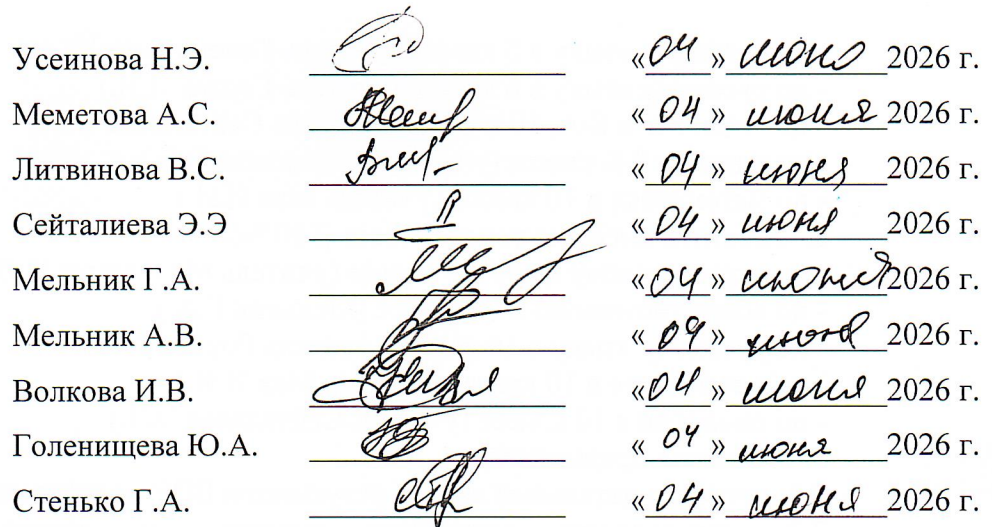 Усеинова Н.Э. «04» июня 2026 г.
Меметова А.С. «04» июня 2026 г.
Литвинова В.С. «04» июня 2026 г.
Сейталиева Э.Э «04» июня 2026 г.
Мельник Г.А. «04» июня 2026 г.
Мельник А.В. «04» июня 2026 г.
Волкова И.В. «04» июня 2026 г.
Голенищева Ю.А. «04» июня 2026 г.
Стенько Г.А. «04» июня 2026 г.